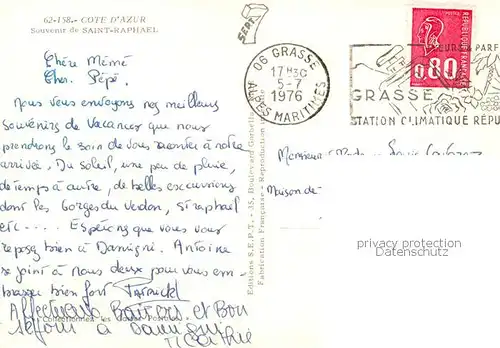 62-158.- COTE D'AZUR
Souvenir de SAINT-RAPHAEL
Chère Mémé
Cher Pépé.
Nous vous envoyons nos meilleurs
Souvenirs de Vacances que nous
prendrons le soin de vous monter à notre
arrivée. Du soleil, une peu de pluie,
de temps à autre, de belles excursions
dont les Gorges du Verdon, St raphaël
etc .... Espérons que vous vous
reposez bien à Damigni. Antoine
se joint à nous deux pour vous em-
brasser bien fort
Affectueux Baisers et Bon
séjour à
Collectionnez les
Editions S.E.P.T. - 35, Boulevard
Fabrication Française - Reproduction
SEPT
06 GRASSE
17 H30
5-7
1976
ALPES MARITIMES
REPUBLIQUE FRANÇAISE
0,80
PARF
GRASSE
STATION CLIMATIQUE RÉPU
Monsieur
Maison de
privacy protection
Datenschutz